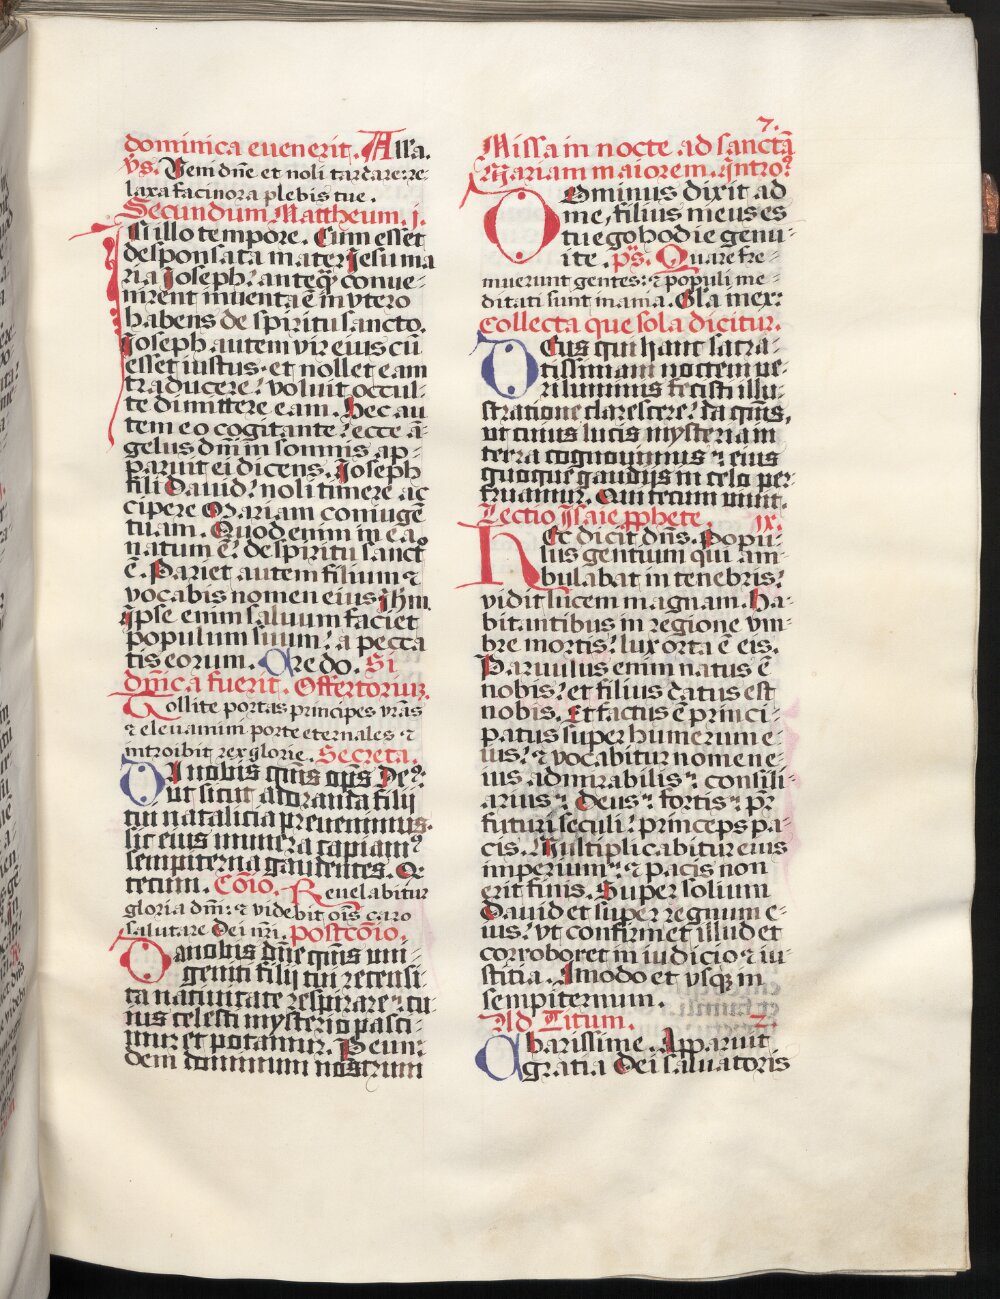 7.
dominica evenerit. Alla.
Vs. Veni dñe et noli tardare: re
laxa facinora plebis tue.
Secundum Mattheum. j.
IN illo tempore. Cum esset
desponsata mater Iesu ma
ria Ioseph: anteq̃ conve-
nirent inventa ẽ in utero
habens de spiritu sancto.
Ioseph autem vir eius cũ
esset iustus et nollet eam
traducere: voluit occul-
te dimittere eam. Hec au
tem eo cogitante: ecce ã-
gelus dñi in somnis ap-
paruit ei dicens. Ioseph
fili David: noli timere ac
cipere Mariam coniugẽ
tuam. Quod enim in ea
natum ẽ: de spiritu sancto
ẽ. Pariet autem filium ⁊
vocabis nomen eius Ihm.
Ipse enim salvum faciet
populum suum: a pecca
tis eorum. Credo. Si
dñica fuerit. Offertorium.
Tollite portas principes vr̃as
⁊ elevamini porte eternales ⁊
introibit rex glorie. Secreta.
DA nobis quis oñps De⁹:
ut sicut adoranda filij
tui natalicia prevenimus.
sic eius munera capiam⁹
sempiterna gaudentes. Q̃
tecum. Cõio. Revelabitur
gloria dñi: ⁊ videbit oĩs caro
salutare Dei nri. Postcõio.
DA nobis dñe quis uni-
geniti filij tui recensi-
ta nativitate respirare: cu
ius celesti mysterio pasci-
mur et potamur. Per eun-
dem dominum nostrum
Missa in nocte ad sanctã
Mariam maiorem. Intro⁹
Dominus dixit ad
me, filius meus es
tu ego hodie genu-
i te. ps. Quare fre-
muerunt gentes: ⁊ populi me-
ditati sunt inania. Gla
Collecta que sola dicitur.
Deus qui hanc sacra-
tissimam noctem ve-
ri luminis fecisti illu-
stratione clarescere: da quis,
ut cuius lucis mysteria in
terra cognovimus ⁊ eius
quoque gaudijs in celo per-
fruamur. Qui tecum vivit.
Lectio Isaie pphete. ix.
Hec dicit dñs. Popu-
lus gentium qui am-
bulabat in tenebris:
vidit lucem magnam. Ha-
bitantibus in regione um-
bre mortis: lux orta ẽ eis.
Parvulus enim natus ẽ
nobis: et filius datus est
nobis. Et factus ẽ princi-
patus super humerum e-
ius: ⁊ vocabitur nomen e-
ius admirabilis ⁊ consili-
arius ⁊ Deus ⁊ fortis ⁊ pr̃
futuri seculi: princeps pa-
cis. Multiplicabitur eius
imperium: ⁊ pacis non
erit finis. Super solium
David et super regnum e-
ius: ut confirmet illud et
corroboret in iudicio ⁊ iu-
stitia. Amodo et usq̃ in
sempiternum.
Ad Titum. 2.
Charissime. Apparuit
gratia Dei salvatoris